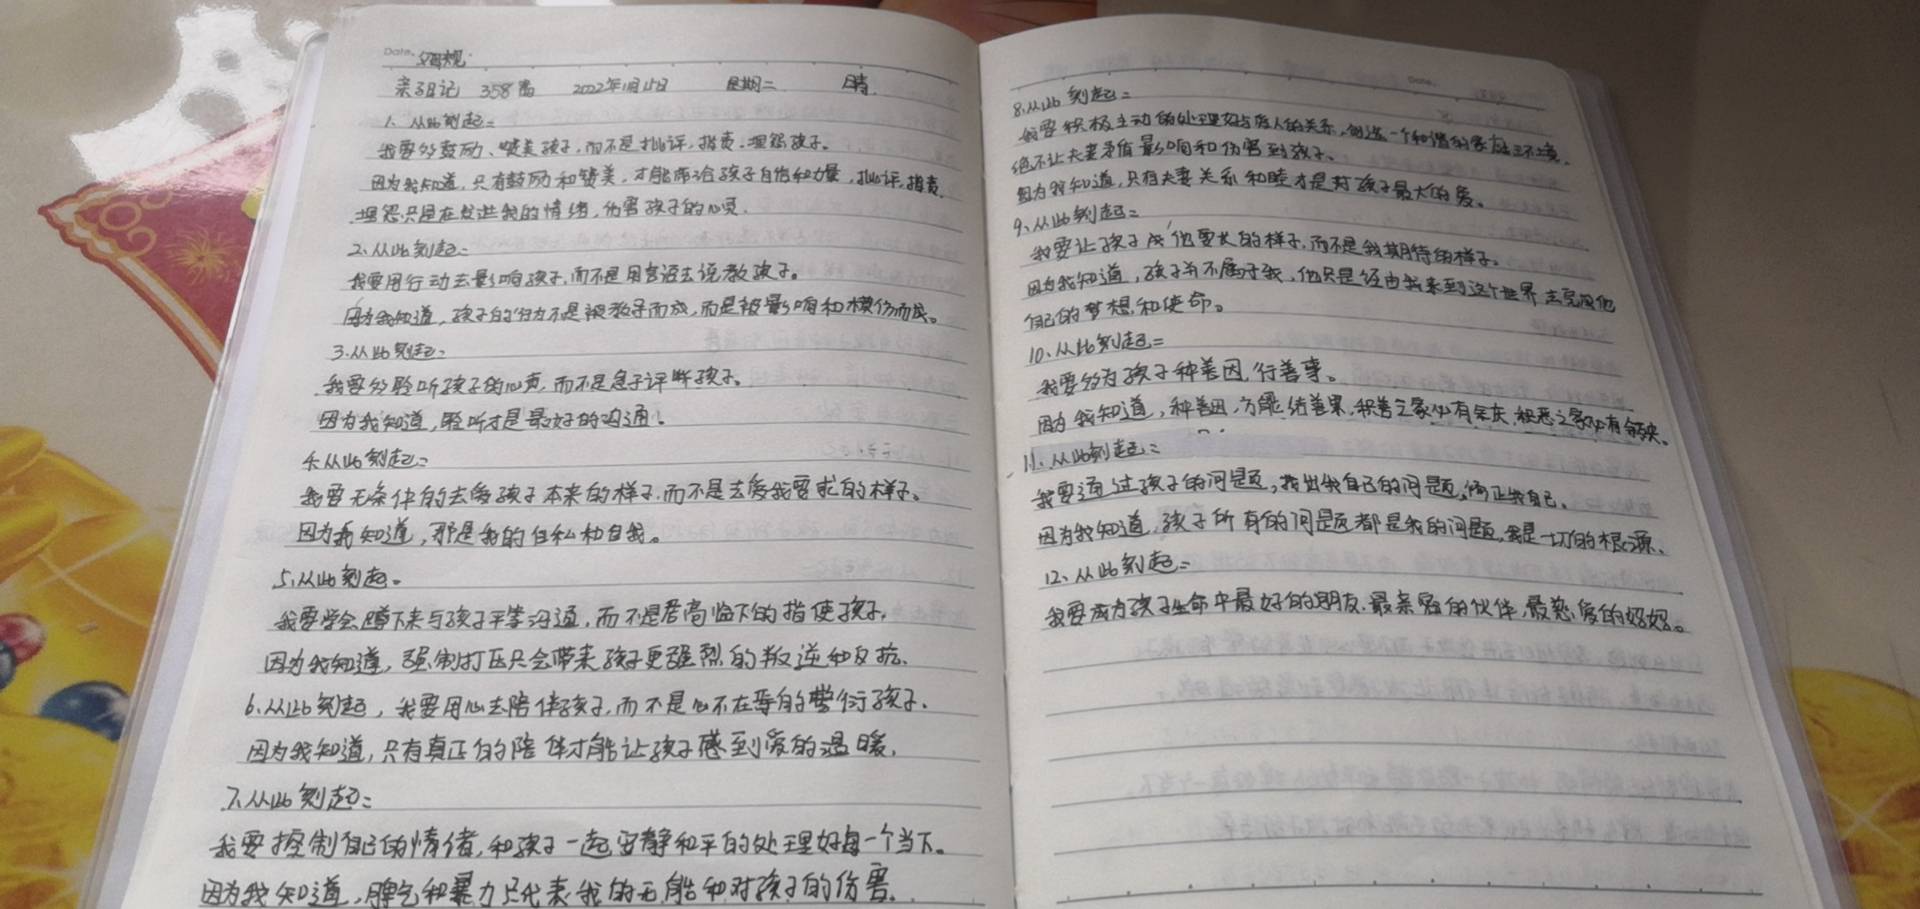 Date.
父母规
亲子日记 358篇 2022年11月15日 星期二 晴.
1、从此刻起:
我要多鼓励、赞美孩子,而不是批评,指责.埋怨孩子。
因为我知道,只有鼓励和赞美,才能带给孩子自信和力量,批评,指责.
埋怨只是在发泄我的情绪,伤害孩子的心灵.
2、从此刻起:
我要用行动去影响孩子,而不是用言语去说教孩子。
因为我知道,孩子的行为不是被教导而成,而是被影响和模仿而成。
3.从此刻起:
我要多聆听孩子的心声,而不是急于评断孩子。
因为我知道,聆听才是最好的沟通。
4.从此刻起:
我要无条件的去爱孩子本来的样子,而不是去爱我要求的样子。
因为我知道,那是我的自私和自我。
5、从此刻起。
我要学会蹲下来与孩子平等沟通,而不是居高临下的指使孩子,
因为我知道,强制打压只会带来孩子更强烈的叛逆和反抗.
6、从此刻起,我要用心去陪伴孩子,而不是心不在焉的敷衍孩子.
因为我知道,只有真正的陪伴才能让孩子感到爱的温暖.
7、从此刻起:
我要控制自己的情绪,和孩子一起安静和平的处理好每一个当下。
因为我知道,脾气和暴力只代表我的无能和对孩子的伤害.
Date.
8.从此刻起:
我要积极主动的处理好与家人的关系,创造一个和谐的家庭环境.
绝不让夫妻矛盾影响和伤害到孩子.
因为我知道,只有夫妻关系和睦才是对孩子最大的爱。
9、从此刻起:
我要让孩子成他要长的样子,而不是我期待的样子。
因为我知道,孩子并不属于我,他只是经由我来到这个世界去完成他
自己的梦想和使命。
10、从此刻起:
我要多为孩子种善因,行善事。
因为我知道,种善因,方能结善果,积善之家必有余庆,积恶之家必有余殃。
11、从此刻起:
我要通过孩子的问题,找出我自己的问题,修正我自己.
因为我知道,孩子所有的问题都是我的问题,我是一切的根源.
12、从此刻起:
我要成为孩子生命中最好的朋友.最亲密的伙伴,最慈爱的妈妈。